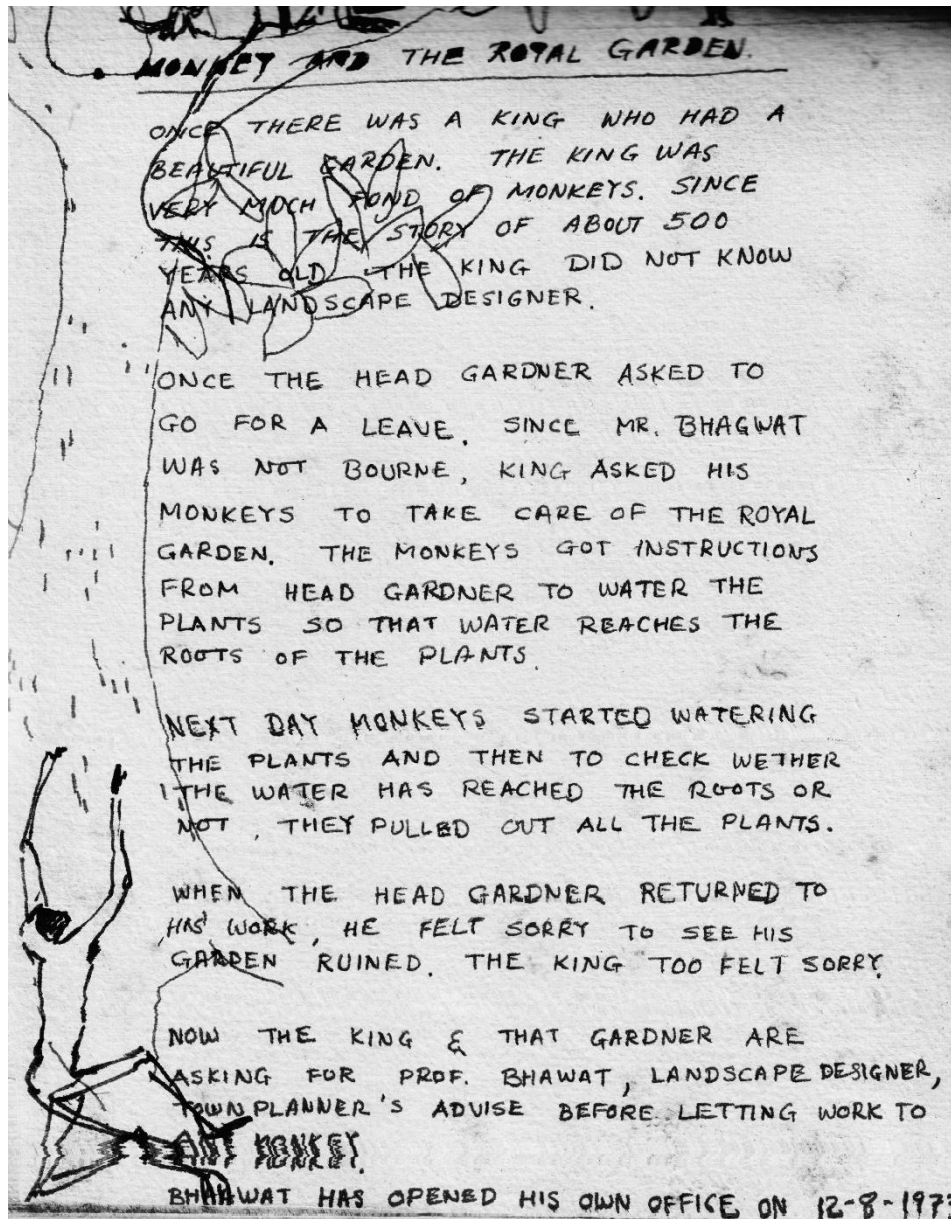 MONKEY AND THE ROYAL GARDEN.
ONCE THERE WAS A KING WHO HAD A
BEAUTIFUL GARDEN. THE KING WAS
VERY MUCH FOND OF MONKEYS. SINCE
THIS IS THE STORY OF ABOUT 500
YEARS OLD. THE KING DID NOT KNOW
ANY LANDSCAPE DESIGNER.
ONCE THE HEAD GARDNER ASKED TO
GO FOR A LEAVE. SINCE MR. BHAGWAT
WAS NOT BOURNE, KING ASKED HIS
MONKEYS TO TAKE CARE OF THE ROYAL
GARDEN. THE MONKEYS GOT INSTRUCTIONS
FROM HEAD GARDNER TO WATER THE
PLANTS SO THAT WATER REACHES THE
ROOTS OF THE PLANTS.
NEXT DAY MONKEYS STARTED WATERING
THE PLANTS AND THEN TO CHECK WETHER
THE WATER HAS REACHED THE ROOTS OR
NOT, THEY PULLED OUT ALL THE PLANTS.
WHEN THE HEAD GARDNER RETURNED TO
HIS WORK, HE FELT SORRY TO SEE HIS
GARDEN RUINED. THE KING TOO FELT SORRY.
NOW THE KING & THAT GARDNER ARE
ASKING FOR PROF. BHAWAT, LANDSCAPE DESIGNER,
TOWN PLANNER'S ADVISE BEFORE LETTING WORK TO
ANY MONKEY.
BHAHWAT HAS OPENED HIS OWN OFFICE ON 12-8-197